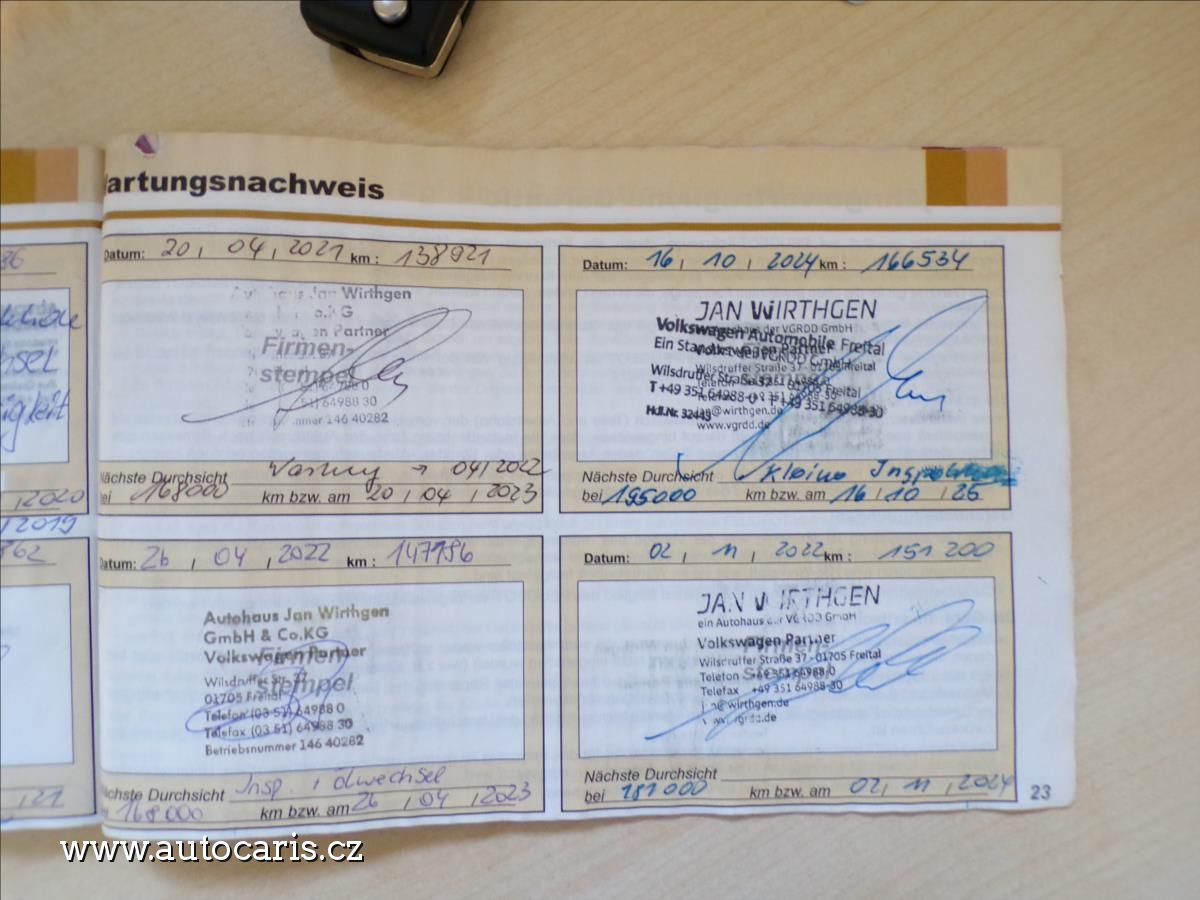 artungsnachweis
Datum: 20, 04, 2021 km: 138921
Autohaus Jan Wirthgen
Partner
Firmen-
stempel
64988 30
146 40282
Nächste Durchsicht Wartung → 04/2022
bei 168000 km bzw. am 20, 04, 2023
Datum: 16, 10, 2024 km: 166534
JAN WIRTHGEN
Volkswagen Automobile Freital
Wilsdruffer Straße 37
01705 Freital
T +49 351 64988-0 F +49 351 64988-30
Hdl.Nr. 32443
@wirthgen.de
www.vgrdd.de
Nächste Durchsicht Kleine
bei 195000 km bzw. am 16, 10, 26
Datum: 26, 04, 2022 km: 147796
Autohaus Jan Wirthgen
GmbH & Co.KG
Volkswagen Partner
Firmen-
stempel
Wilsdruffer Str. 37
01705 Freital
Telefon (03 51) 64988 0
Telefax (03 51) 64988 30
Betriebsnummer 146 40282
chste Durchsicht Insp. + Ölwechsel
168000 km bzw. am 26, 04, 2023
Datum: 02, 11, 2022 km: 151 200
JAN WIRTHGEN
ein Autohaus der VGRDD GmbH
Volkswagen Partner
Firmen-
stempel
Wilsdruffer Straße 37 - 01705 Freital
Telefon +49 351 64988-0
Telefax +49 351 64988-30
@wirthgen.de
vgrdd.de
Nächste Durchsicht
bei 181000 km bzw. am 02, 11, 2024
23
2020
2019
862
21
www.autocaris.cz